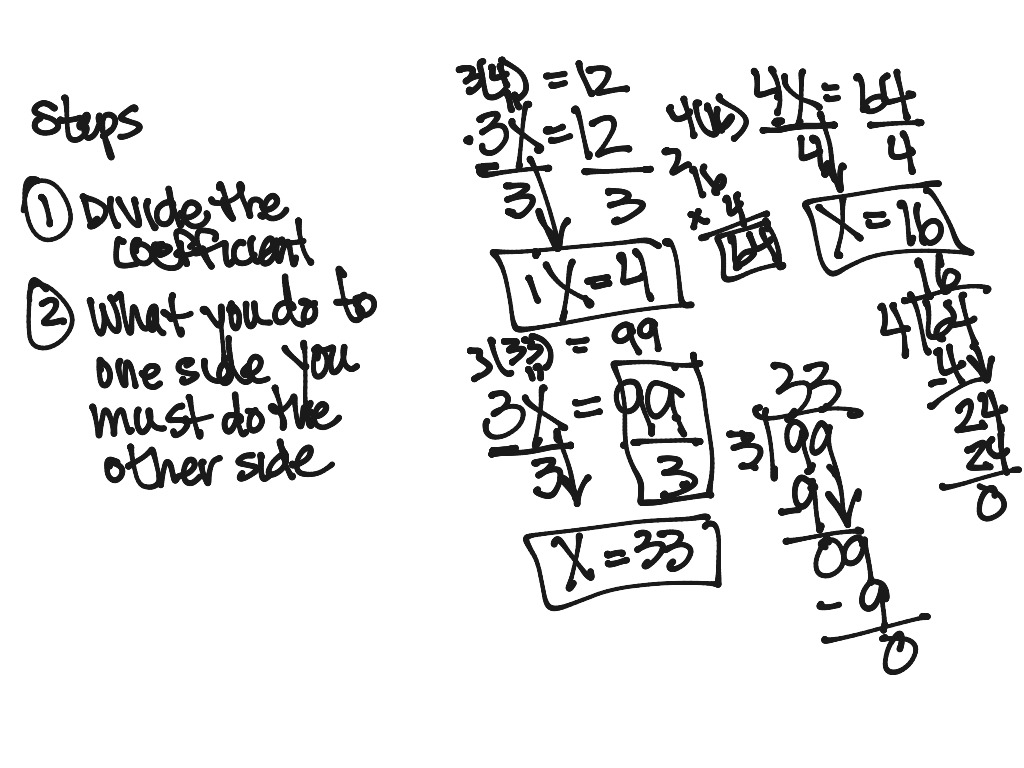 Steps
① Divide the
coefficient
② What you do to
one side you
must do the
other side
3(4) = 12
3x = 12
3 3
1x = 4
3(33) = 99
3x = 99
3 3
x = 33
4(16)
2
16
x 4
64
4x = 64
4 4
x = 16
16
4 64
-4
24
24
0
33
3 99
-9
09
- 9
0